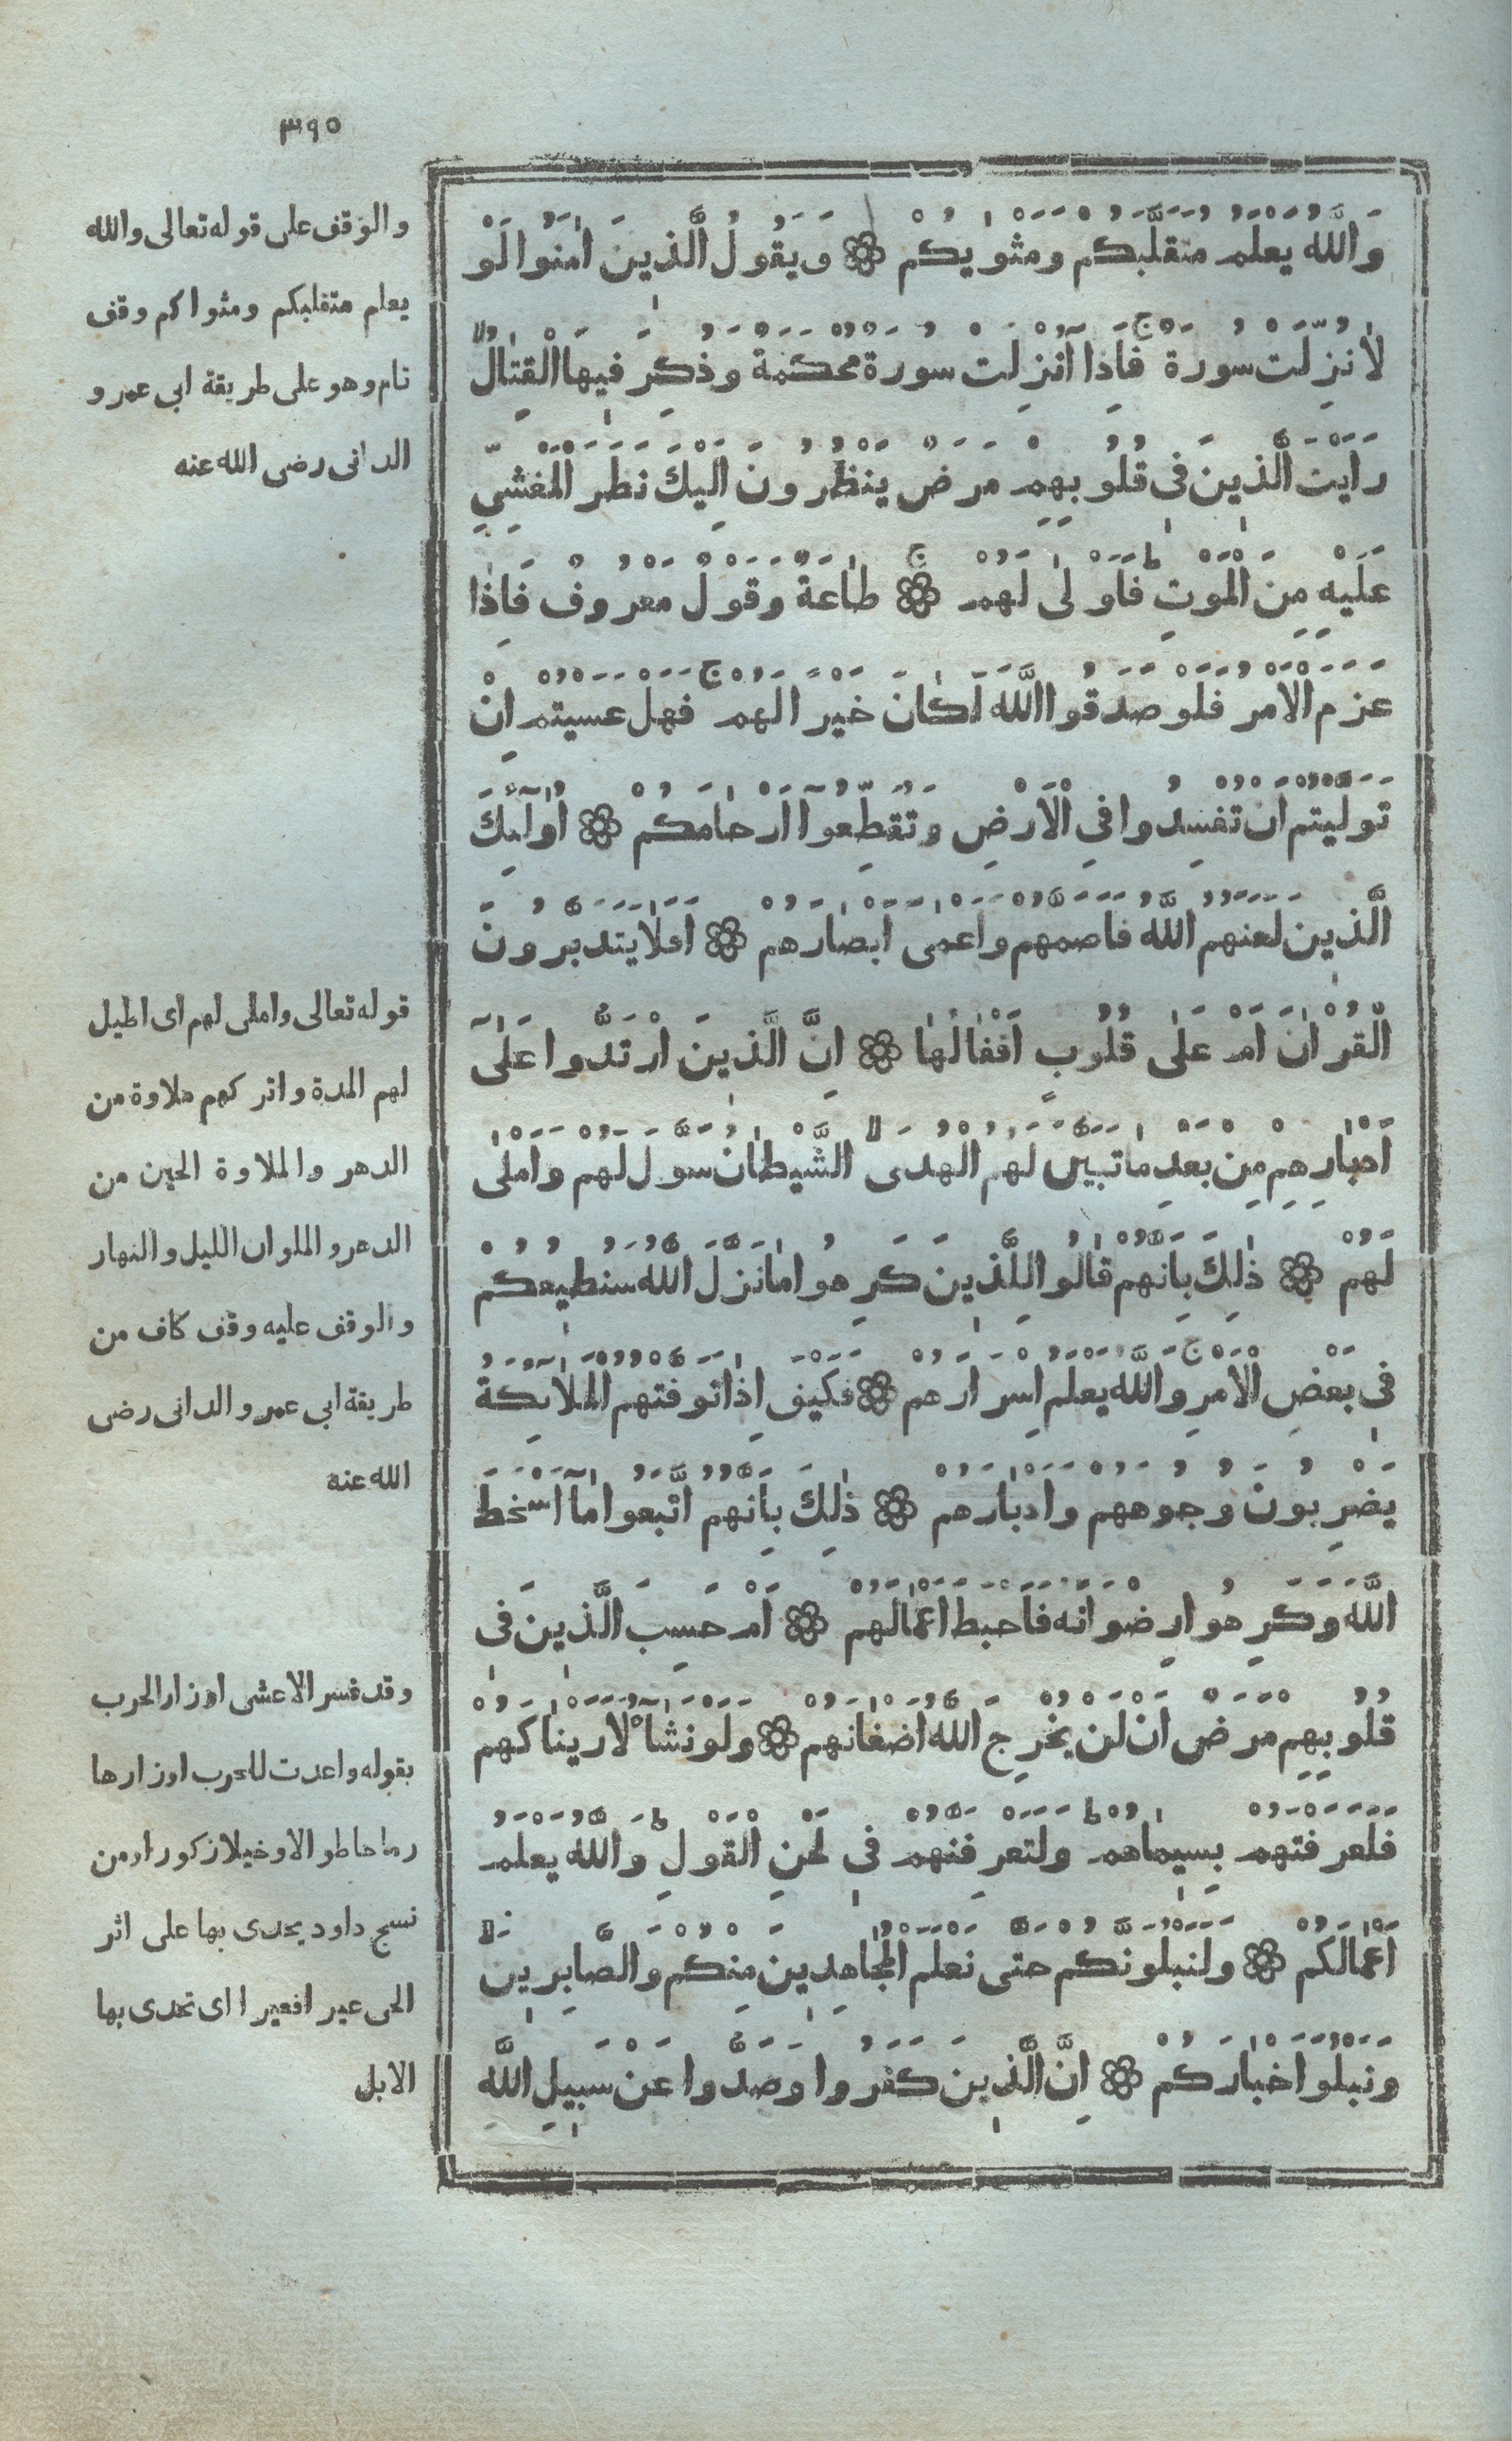 ٣٩٥
وَاللّٰهُ يَعْلَمُ مُتَقَلَّبَكُمْ وَمَثْوٰيكُمْ ۞ وَيَقُولُ الَّذِينَ اٰمَنُوا لَوْ
لَا نُزِّلَتْ سُورَةٌ ج فَاِذَا اُنْزِلَتْ سُورَةٌ مُحْكَمَةٌ وَذُكِرَ فِيهَا الْقِتَالُ لا
رَاَيْتَ الَّذِينَ فِى قُلُوبِهِمْ مَرَضٌ يَنْظُرُونَ اِلَيْكَ نَظَرَ الْمَغْشِىِّ
عَلَيْهِ مِنَ الْمَوْتِ ط فَاَوْلٰى لَهُمْ ج ۞ طَاعَةٌ وَقَوْلٌ مَعْرُوفٌ فَاِذَا
عَزَمَ الْاَمْرُ فَلَوْ صَدَقُوا اللّٰهَ لَكَانَ خَيْرًا لَهُمْ ج فَهَلْ عَسَيْتُمْ اِنْ
تَوَلَّيْتُمْ اَنْ تُفْسِدُوا فِى الْاَرْضِ وَتُقَطِّعُوٓا اَرْحَامَكُمْ ۞ اُولٰٓئِكَ
الَّذِينَ لَعَنَهُمُ اللّٰهُ فَاَصَمَّهُمْ وَاَعْمٰى اَبْصَارَهُمْ ۞ اَفَلَا يَتَدَبَّرُونَ
الْقُرْاٰنَ اَمْ عَلٰى قُلُوبٍ اَقْفَالُهَا ۞ اِنَّ الَّذِينَ ارْتَدُّوا عَلٰٓى
اَدْبَارِهِمْ مِنْ بَعْدِ مَا تَبَيَّنَ لَهُمُ الْهُدَى لا الشَّيْطَانُ سَوَّلَ لَهُمْ وَاَمْلٰى
لَهُمْ ۞ ذٰلِكَ بِاَنَّهُمْ قَالُوا لِلَّذِينَ كَرِهُوا مَا نَزَّلَ اللّٰهُ سَنُطِيعُكُمْ
فِى بَعْضِ الْاَمْرِ ج وَاللّٰهُ يَعْلَمُ اِسْرَارَهُمْ ۞ فَكَيْفَ اِذَا تَوَفَّتْهُمُ الْمَلَآئِكَةُ
يَضْرِبُونَ وُجُوهَهُمْ وَاَدْبَارَهُمْ ۞ ذٰلِكَ بِاَنَّهُمُ اتَّبَعُوا مَآ اَسْخَطَ
اللّٰهَ وَكَرِهُوا رِضْوَانَهُ فَاَحْبَطَ اَعْمَالَهُمْ ۞ اَمْ حَسِبَ الَّذِينَ فِى
قُلُوبِهِمْ مَرَضٌ اَنْ لَنْ يُخْرِجَ اللّٰهُ اَضْغَانَهُمْ ۞ وَلَوْ نَشَآءُ لَاَرَيْنَاكَهُمْ
فَلَعَرَفْتَهُمْ بِسِيمَاهُمْ ط وَلَتَعْرِفَنَّهُمْ فِى لَحْنِ الْقَوْلِ ط وَاللّٰهُ يَعْلَمُ
اَعْمَالَكُمْ ۞ وَلَنَبْلُوَنَّكُمْ حَتّٰى نَعْلَمَ الْمُجَاهِدِينَ مِنْكُمْ وَالصَّابِرِينَ لا
وَنَبْلُوَا اَخْبَارَكُمْ ۞ اِنَّ الَّذِينَ كَفَرُوا وَصَدُّوا عَنْ سَبِيلِ اللّٰهِ
والوقف على قوله تعالى والله
يعلم متقلبكم ومثواكم وقف
تام وهو على طريقة ابى عمرو
الدانى رضى الله عنه
قوله تعالى واملى لهم اى اطيل
لهم المدة واتركهم ملاوة من
الدهر والملاوة الحين من
الدهر والملوان الليل والنهار
والوقف عليه وقف كاف من
طريقة ابى عمرو الدانى رضى
الله عنه
وقد فسر الاعشى اوزار الحرب
بقوله واعدت للحرب اوزارها
رماحا طوالا وخيلا ذكورا ومن
نسج داود يحدى بها على اثر
الحى عيرا فعيرا اى تحدى بها
الابل